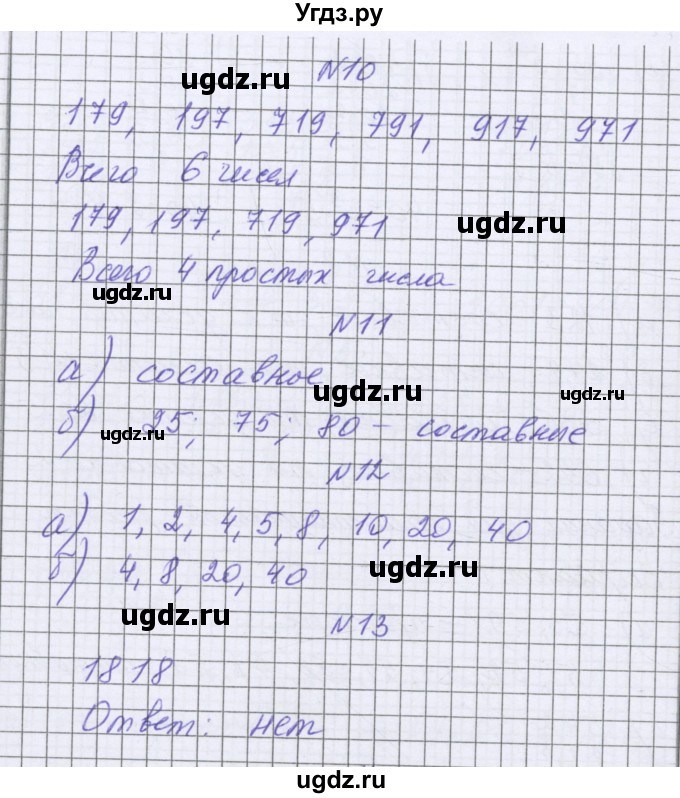 Угдз.ру
ugdz.ru
N10
179, 197, 719, 791, 917, 971
Всего 6 чисел
179, 197, 719, 971
ugdz.ru
Всего 4 простых числа
ugdz.ru
N11
а) составное
ugdz.ru
ugdz.ru
б) 25; 75; 80 - составные
ugdz.ru
N12
а) 1, 2, 4, 5, 8, 10, 20, 40
б) 4, 8, 20, 40
ugdz.ru
ugdz.ru
N13
1818
Ответ: нет
ugdz.ru